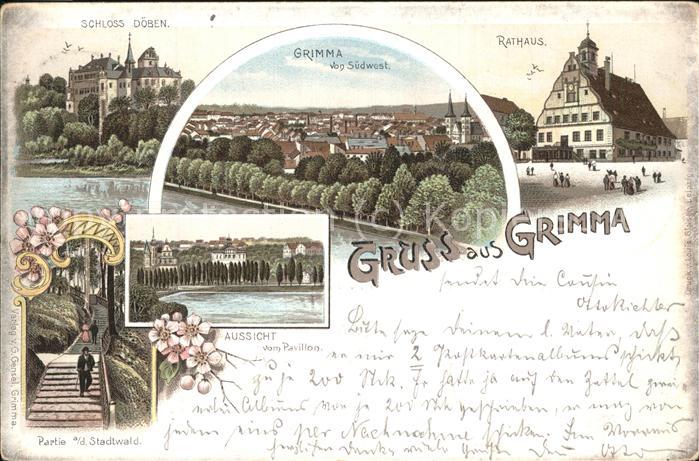 SCHLOSS DÖBEN.
GRIMMA
von Südwest.
RATHAUS.
GRUSS aus GRIMMA
AUSSICHT
vom Pavillon.
Partie a/d. Stadtwald.
Verlag v. G. Gensel, Grimma.
sendet Dein Cousin
Otto Richter
Bitte sage Deinem l. Vater, daß
er mir 2 Postkartenalbums schickt
zu je 200 Stck. Er hatte ja auf den Zettel zwei
Albums von je 200 Stck geschrieben, er mag von
jedem eins per Nachnahme schicken. Im Voraus
herzlichen Dank viele Grüße Dein Otto